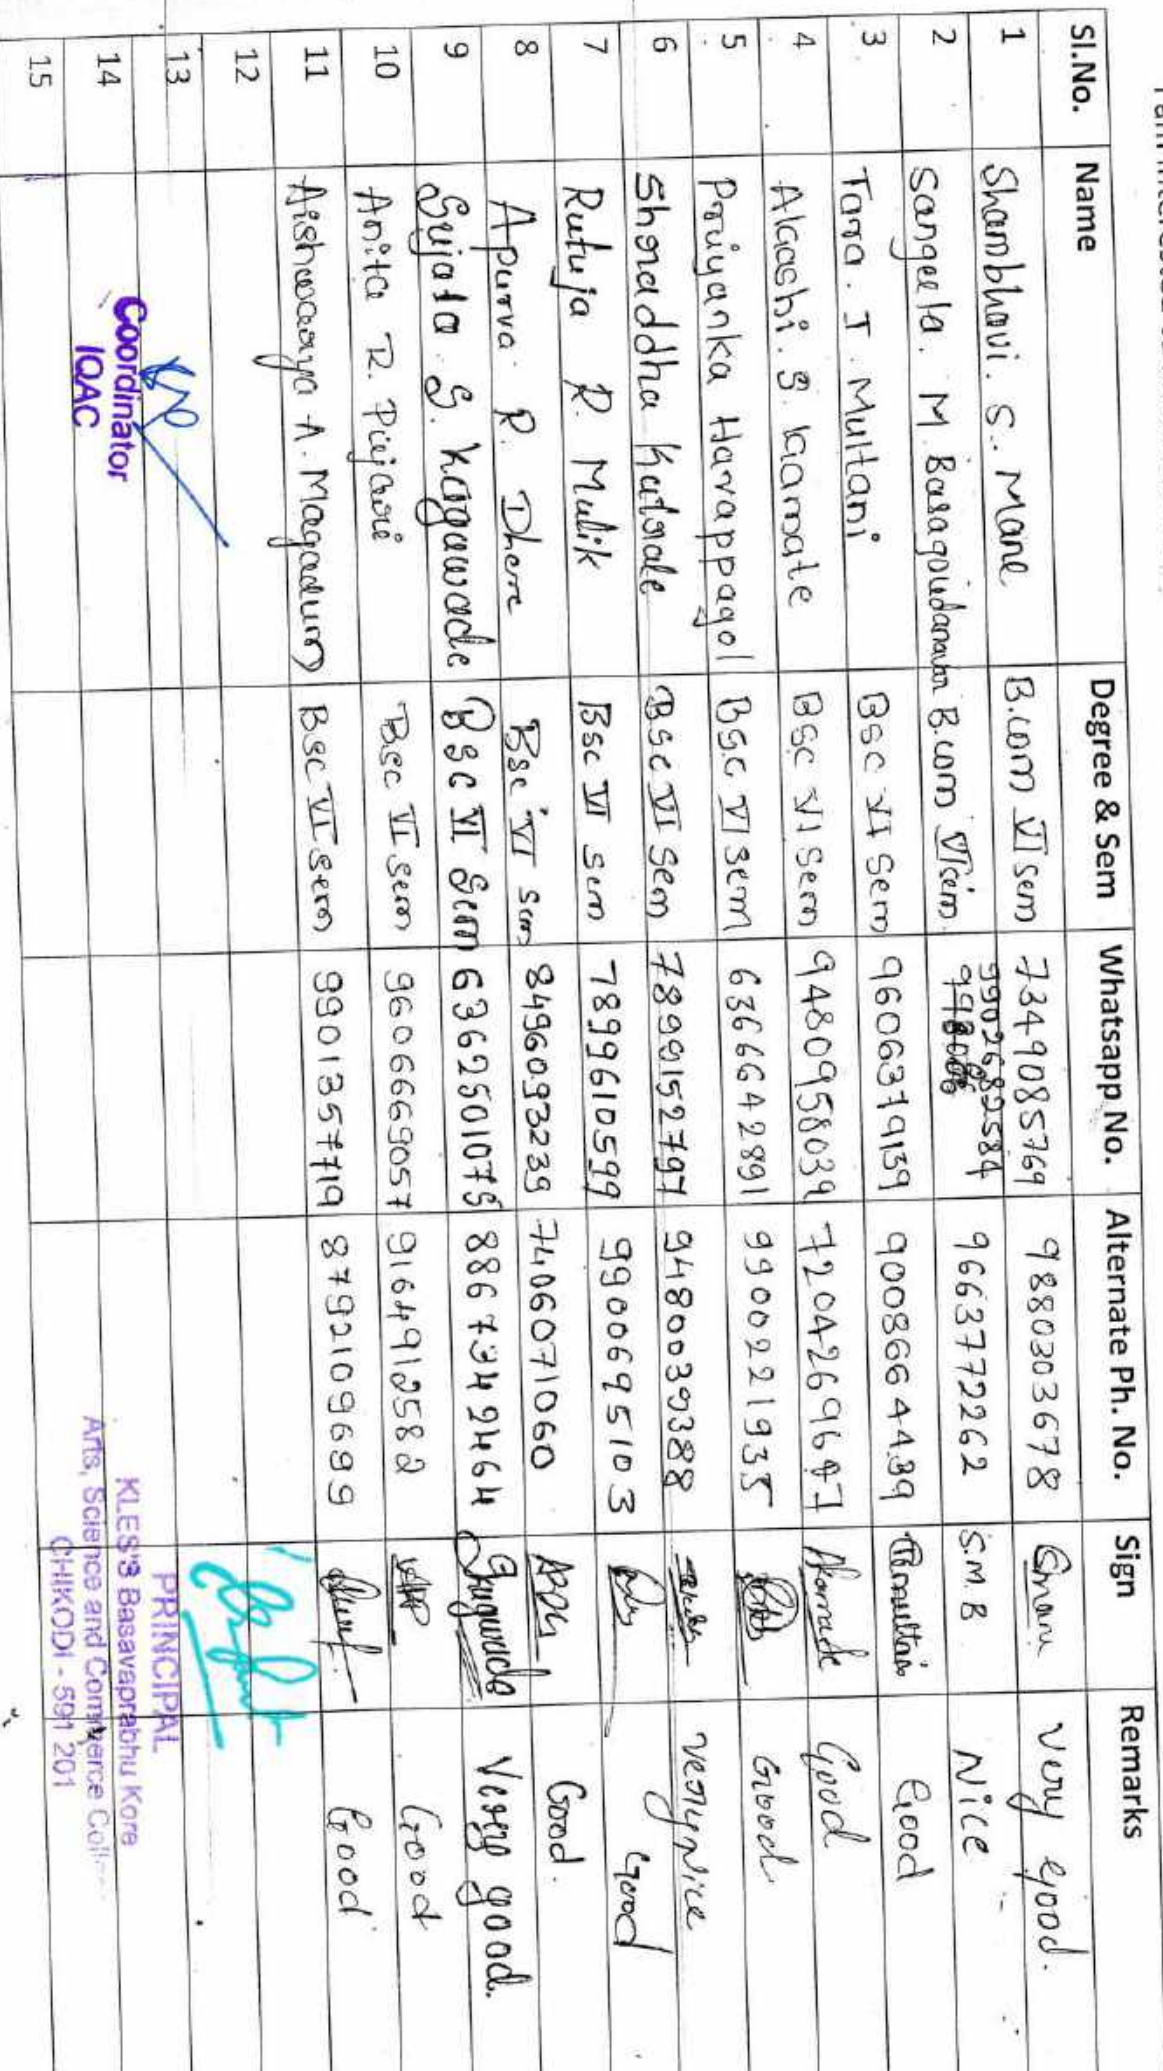 Sl.No. Name Degree & Sem Whatsapp No. Alternate Ph. No. Sign Remarks
1 Shambhavi. S. Mane B.com VI sem 7349085769 9880303678 Very good.
2 Sangeeta. M. Basagoudanavar B.com VI sem. 9902682584 9663772262 S.M.B Nice
3 Tara. I. Multani BSC VI Sem 9606379139 9008664439 Good
4 Alaashi. S. Kamate BSC VI Sem 9480958039 Good
5 Priyanka Harappagol BSC VI sem 6366642891 9900221935 Good
6 Shraddha Katrale BSC VI Sem 7899152797 9480030388 Very Nice
7 Rutuja R. Mulik BSC VI sem 7899610599 9900695103 Good
8 Apurva. R. Dhere BSC VI sem 8496093239 7406071060 Good.
9 Sujata. S. Kagawade BSC VI Sem 6362501075 8867349464 Very good.
10 Anita R. Pujari BSC VI sem 9606669057 9164912582 Good
11 Aishwarya A. Magadum BSC VI sem 9901357719 8792109699 Good
12
13
14
15
Coordinator
IQAC
PRINCIPAL
KLES'S Basavaprabhu Kore
Arts, Science and Commerce Coll
CHIKODI - 591 201